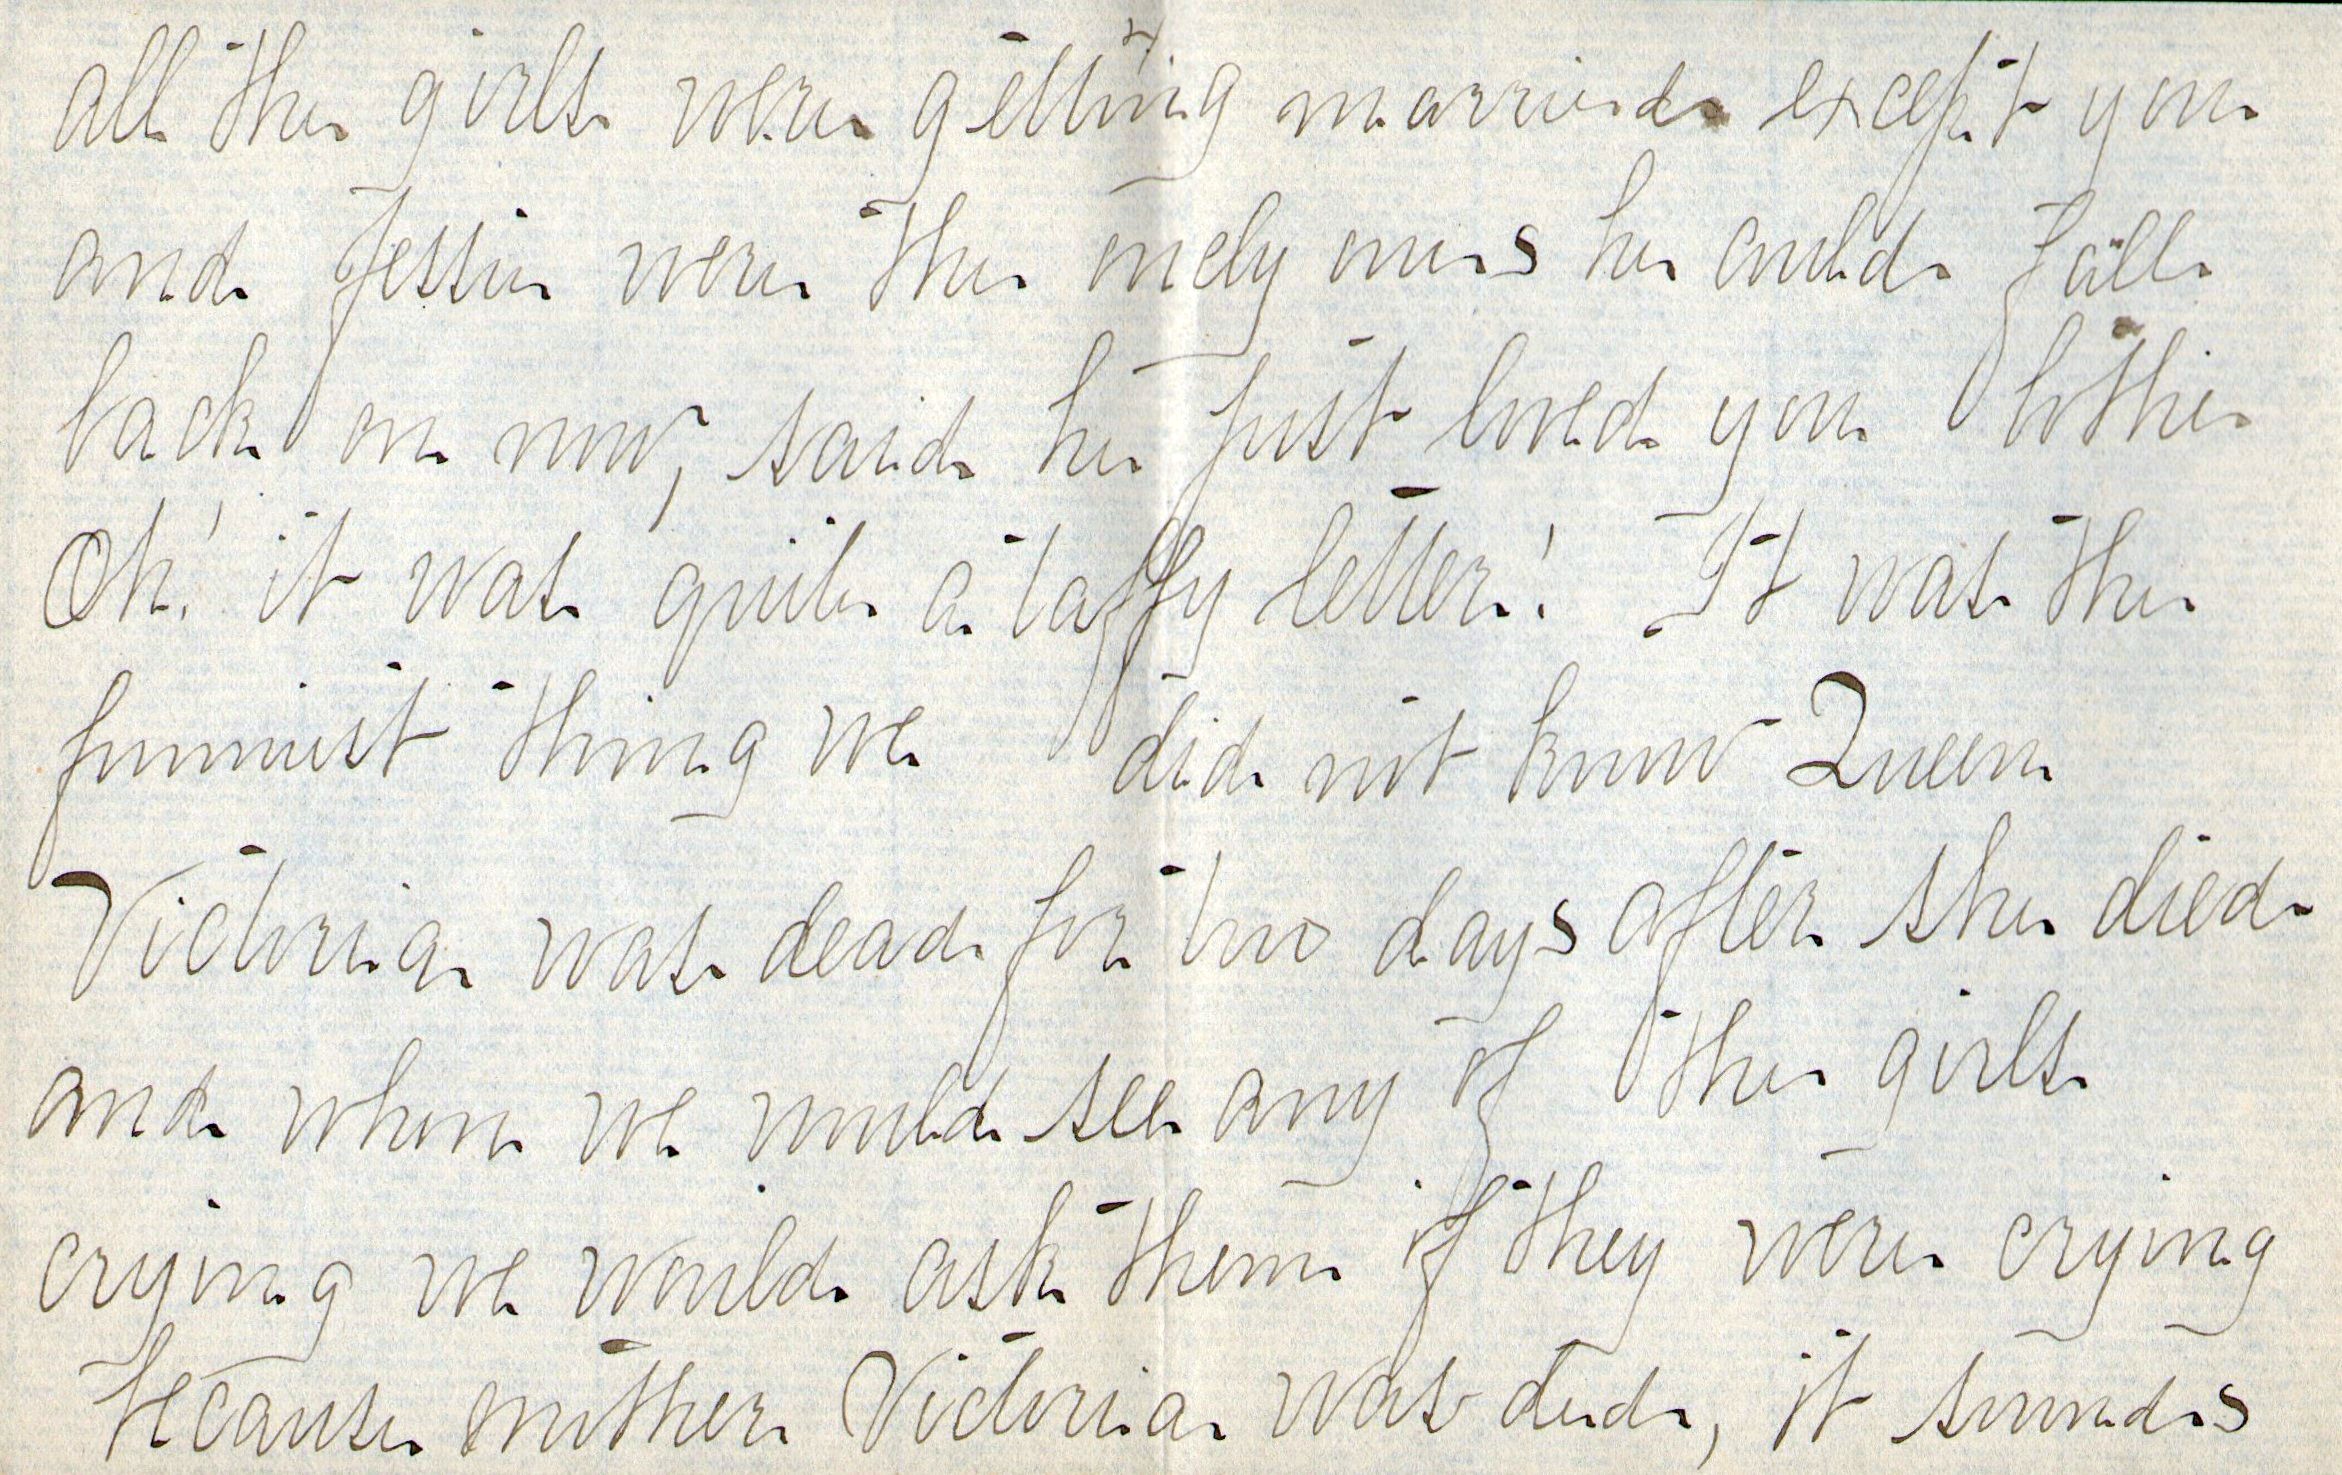 4
all the girls were getting married except you
and Jessie were the onely ones he could fall
back on now, said he just loved you bothe
Oh! it was quite a taffy letter! It was the
funniest thing we did not know Queen
Victoria was dead for two days after she died
and when we would see any of the girls
crying we would ask them if they were crying
because mother Victoria was dead, it sounds